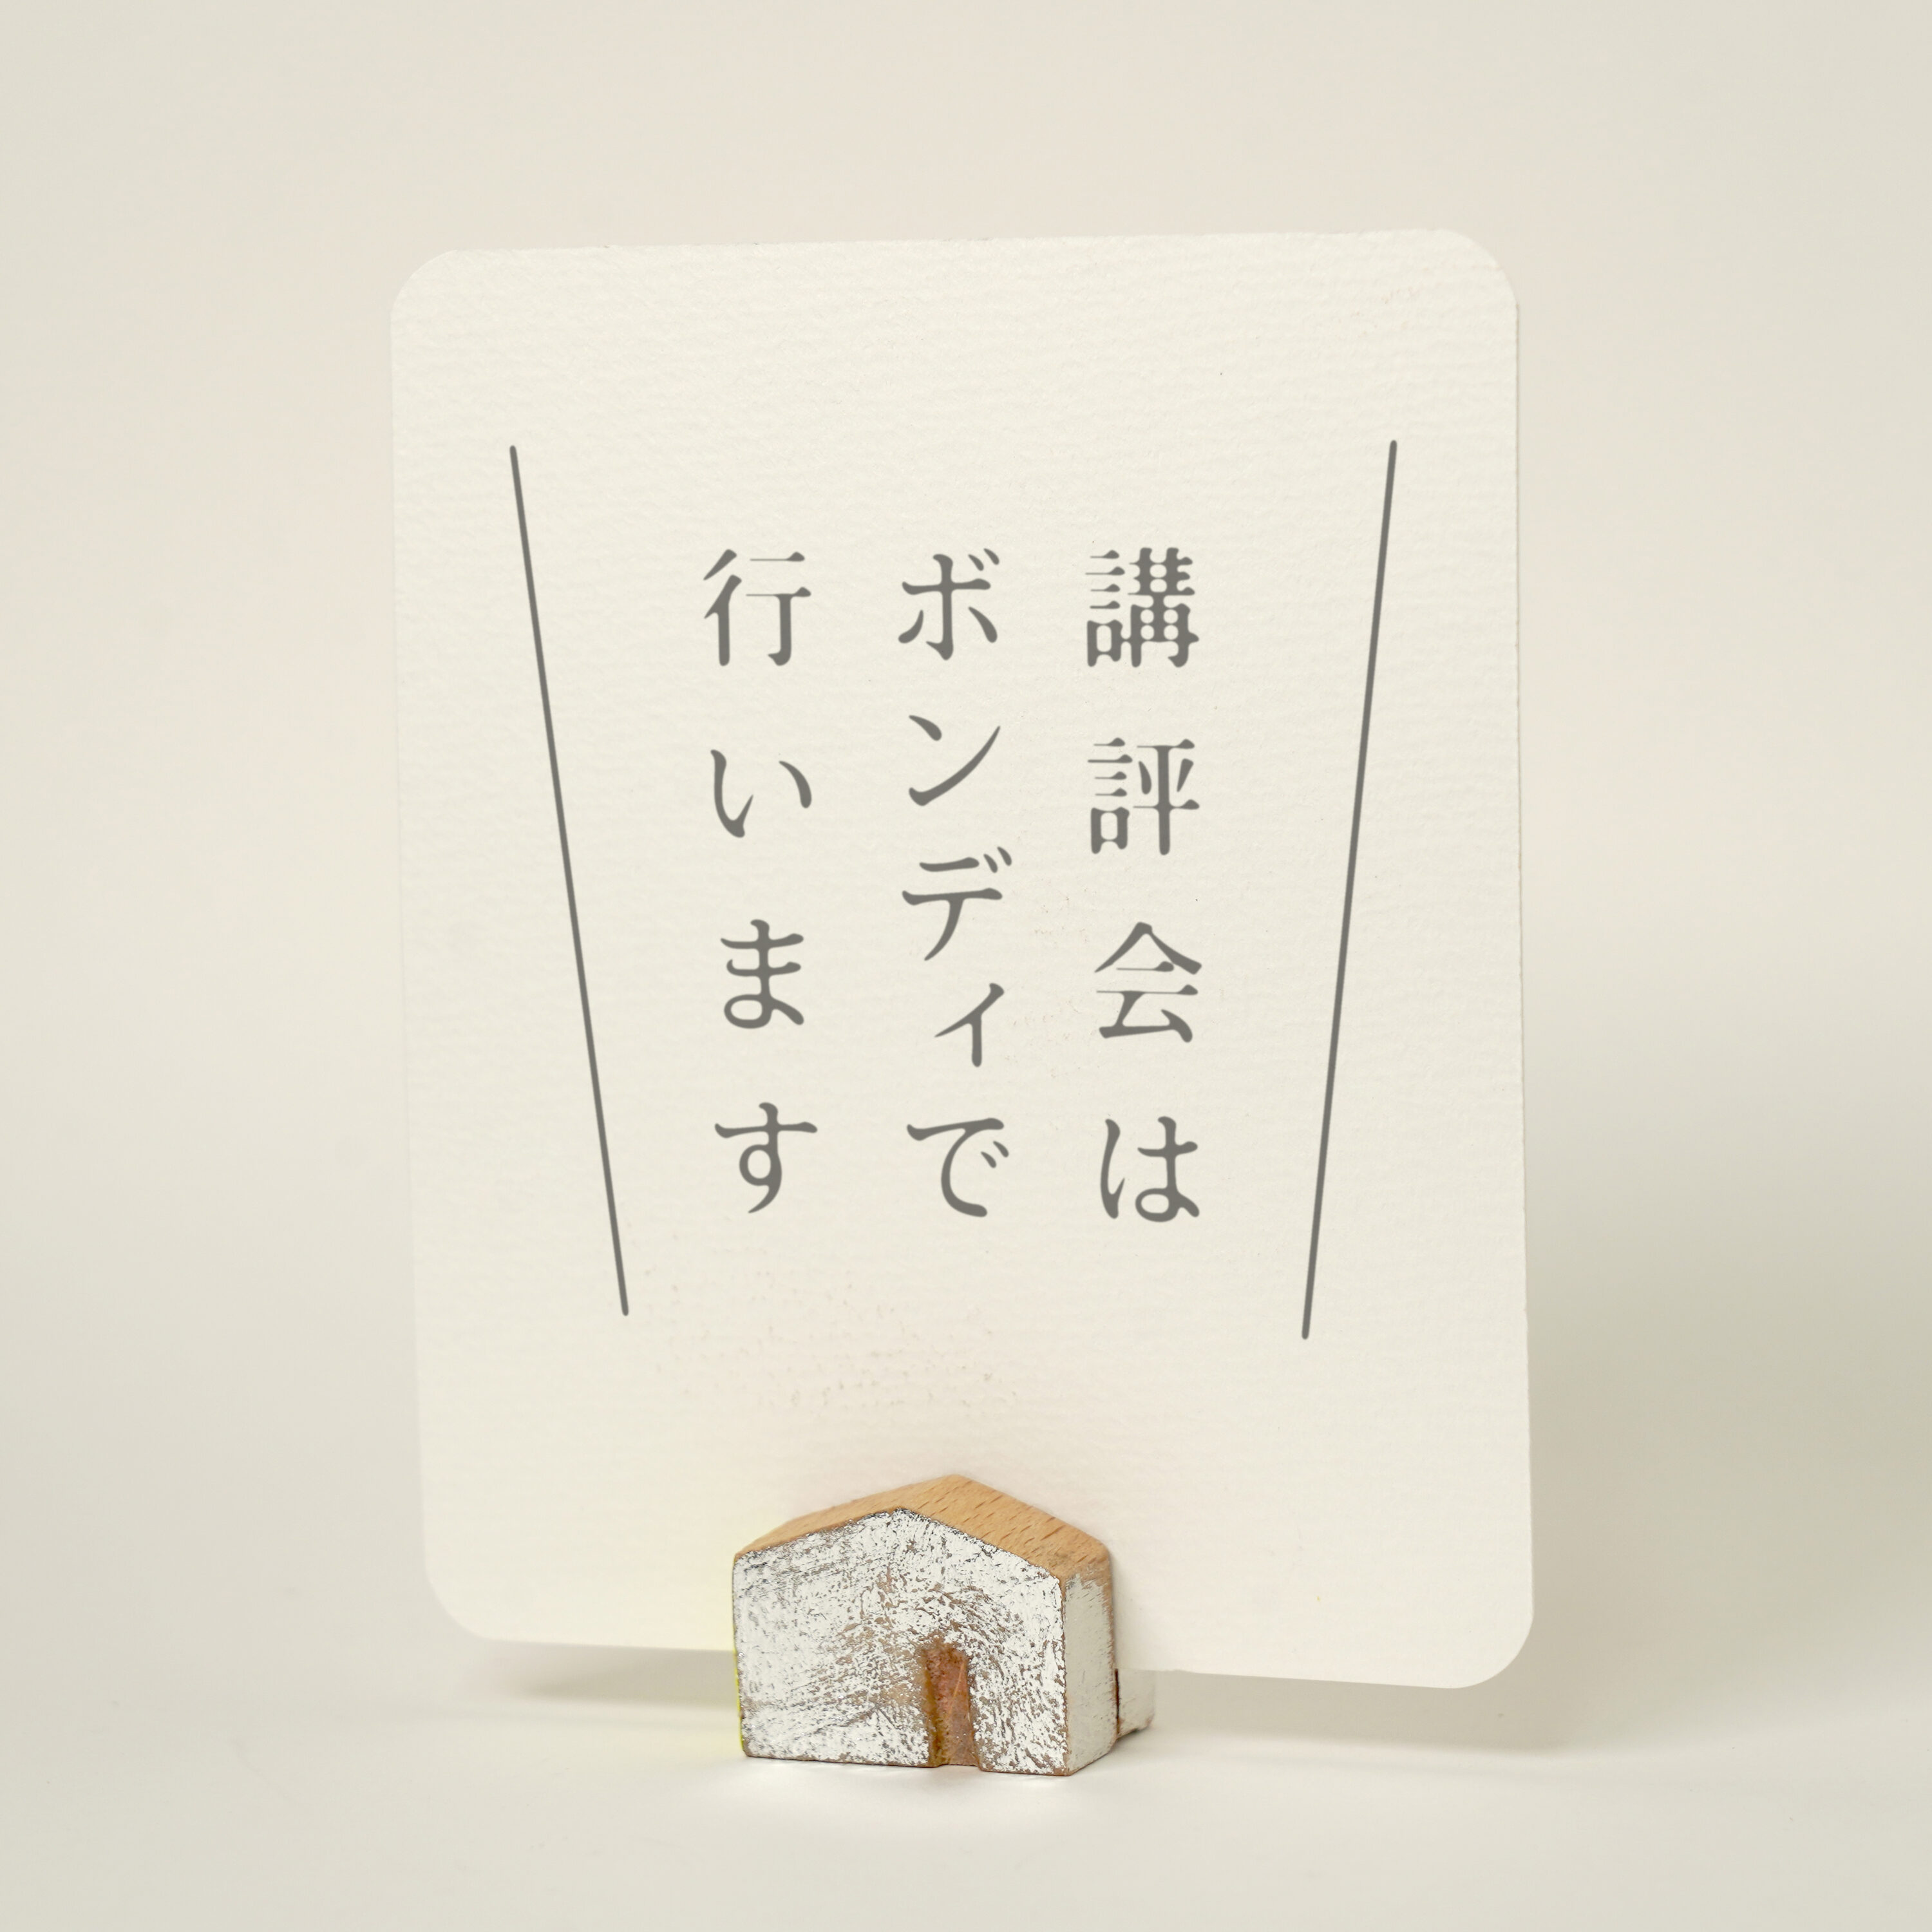 講評会は
ボンディで
行います